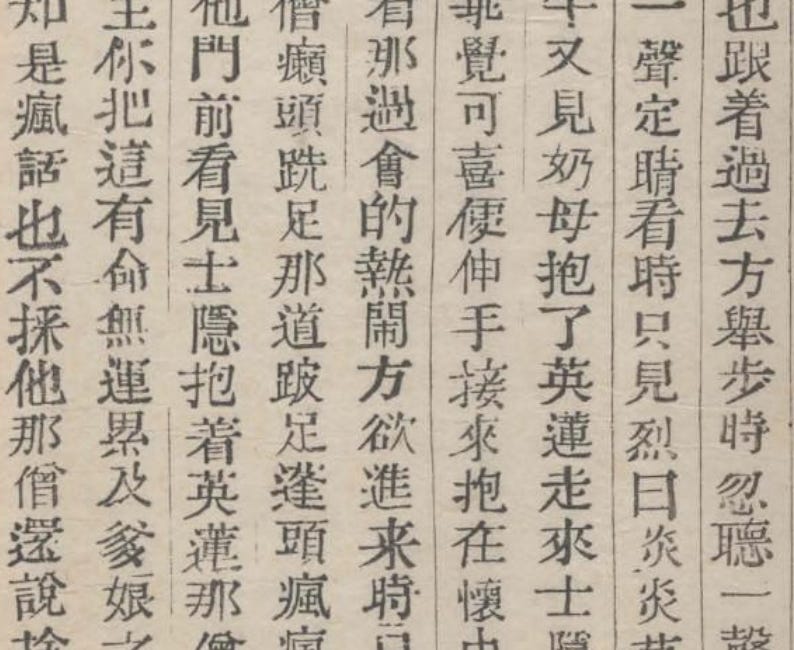 也跟着過去方舉步時忽聽一聲
一聲定睛看時只見烈日炎炎芭
又見奶母抱了英蓮走來士隱
乖覺可喜便伸手接來抱在懷中
看那過會的熱鬧方欲進来時只
僧癩頭跣足那道跛足蓬頭瘋瘋
他門前看見士隱抱着英蓮那僧
主你把這有命無運累及爹娘之
知是瘋話也不採他那僧還說捨